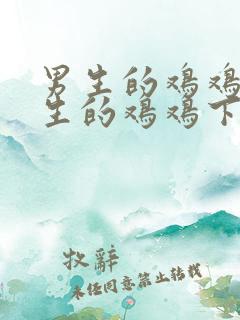 男生的鸡鸡
生的鸡鸡下
牧辞
未经同意禁止转载